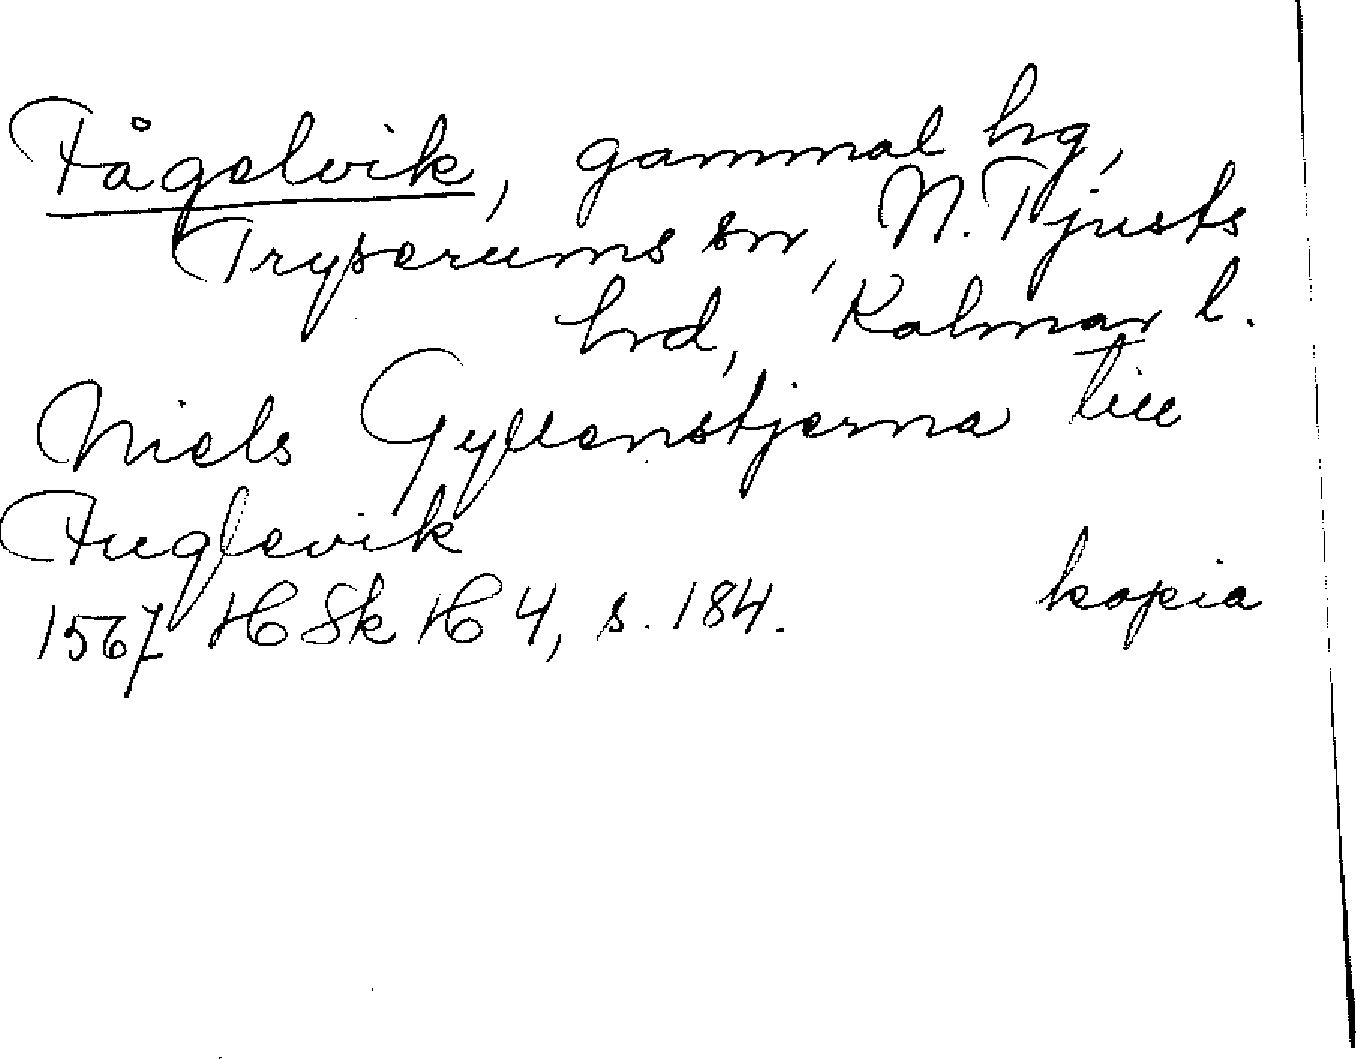 Fågelvik, gammal hg,
Tryserums sn, N. Tjusts
hrd, Kalmar l.
Niels Gyllenstjerna till
Fuglevik
1567 HSkH 4, s. 184. kopia